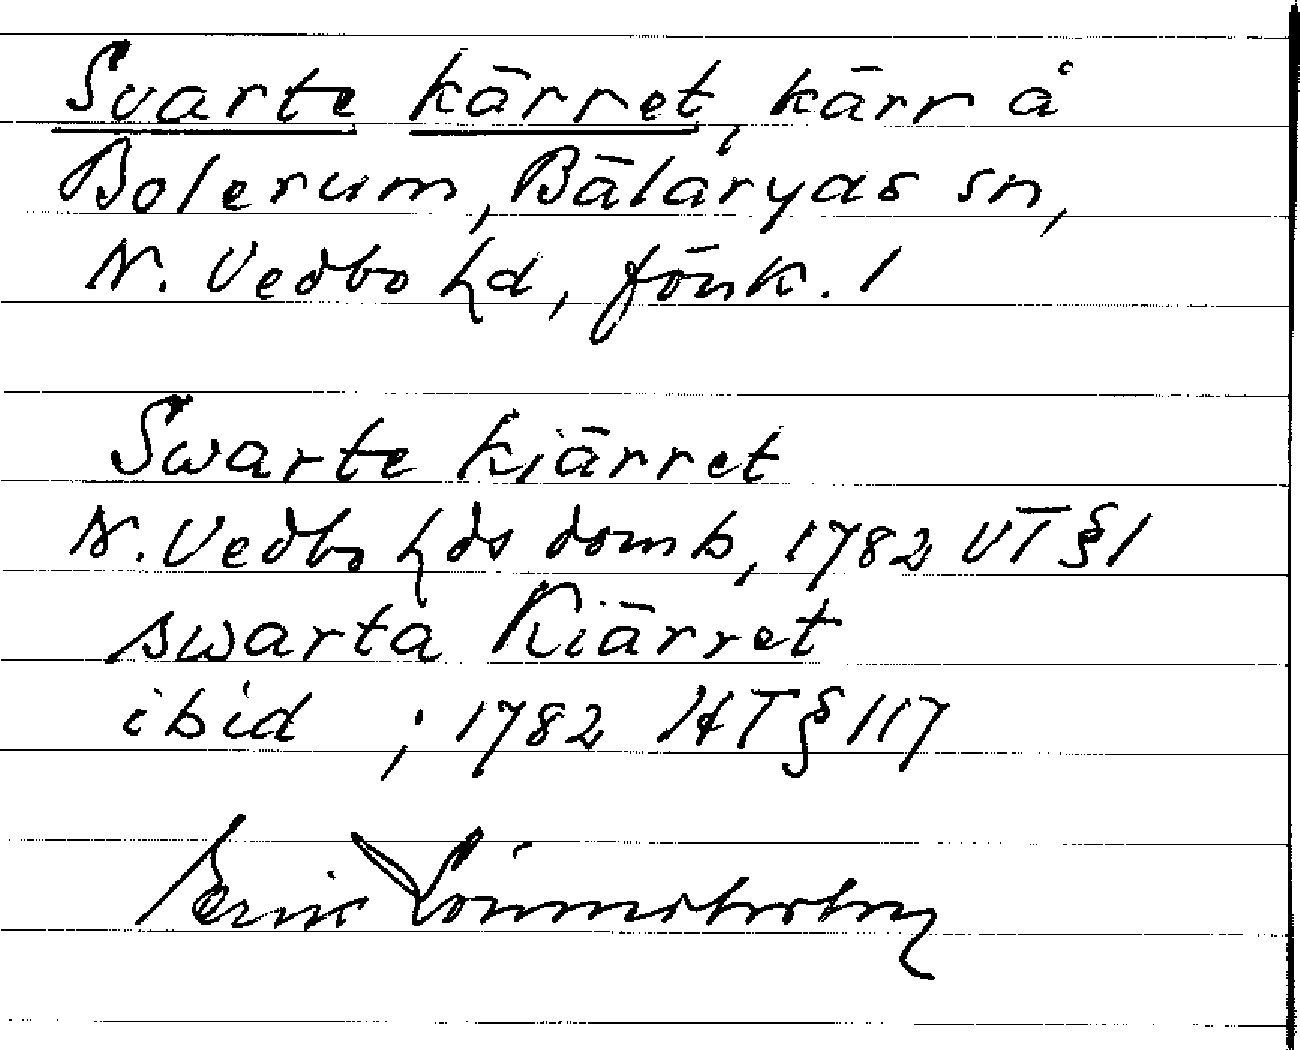 Svarte kärret, kärr å
Bolerum, Bälaryds sn,
N. Vedbo hd, Jönk. l
Swarte kiärret
N. Vedbo hds domb, 1782 VT § 1
swarta Kiärret
ibid ; 1782 HT § 117
Erik